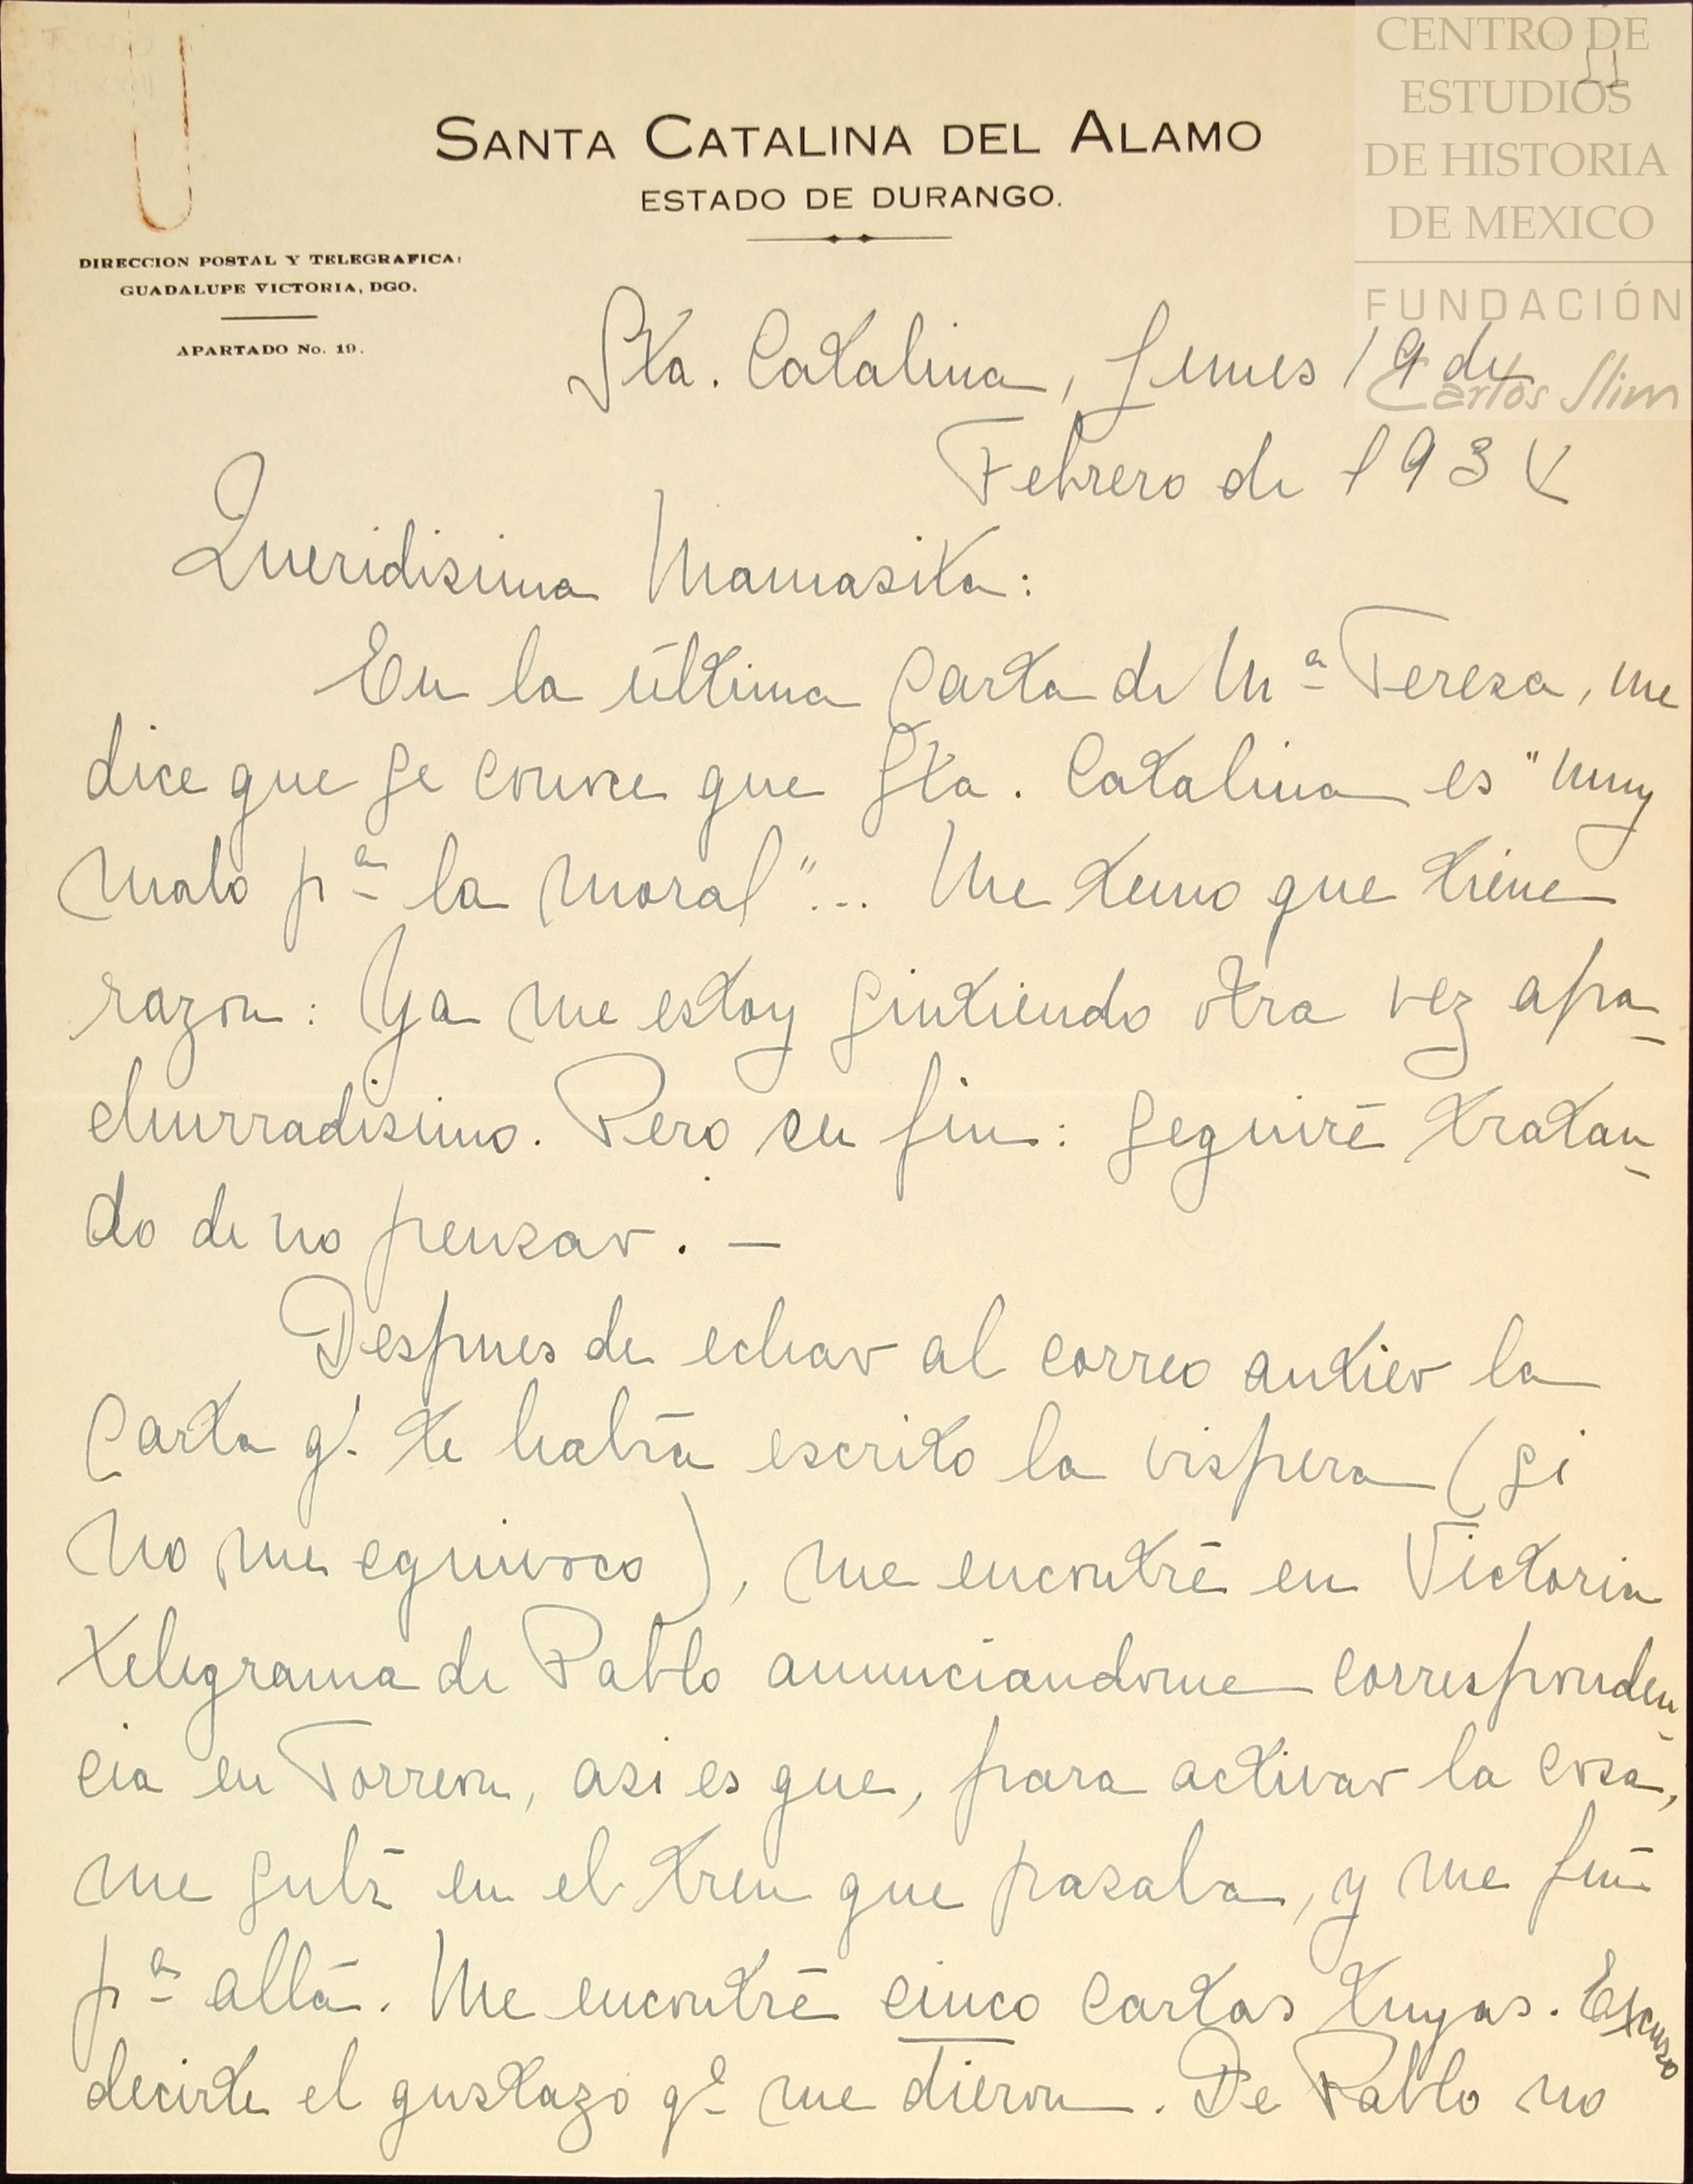 CENTRO DE
ESTUDIOS
DE HISTORIA
DE MEXICO
FUNDACIÓN
Carlos Slim
SANTA CATALINA DEL ALAMO
ESTADO DE DURANGO.
DIRECCION POSTAL Y TELEGRAFICA:
GUADALUPE VICTORIA, DGO.
APARTADO No. 19.
Sta. Catalina, Lunes 19 de
Febrero de 1934
Queridisima Mamasita:
En la última carta de Mª Teresa, me
dice que se conoce que Sta. Catalina es "muy
malo pª la moral"... Me temo que tiene
razon: Ya me estoy sintiendo otra vez apa-
churradisimo. Pero en fin: seguiré tratan-
do de no pensar. —
Despues de echar al correo antier la
carta q! te habiá escrito la vispera (si
no me equivoco), me encontré en Victoria
telegrama de Pablo anunciandome corresponden-
cia en Torreon, asi es que, para activar la cosa,
me subí en el tren que pasaba, y me fuí
pª allá. Me encontré cinco cartas tuyas. Excuso
decirte el gustazo qe me dieron. De Pablo no